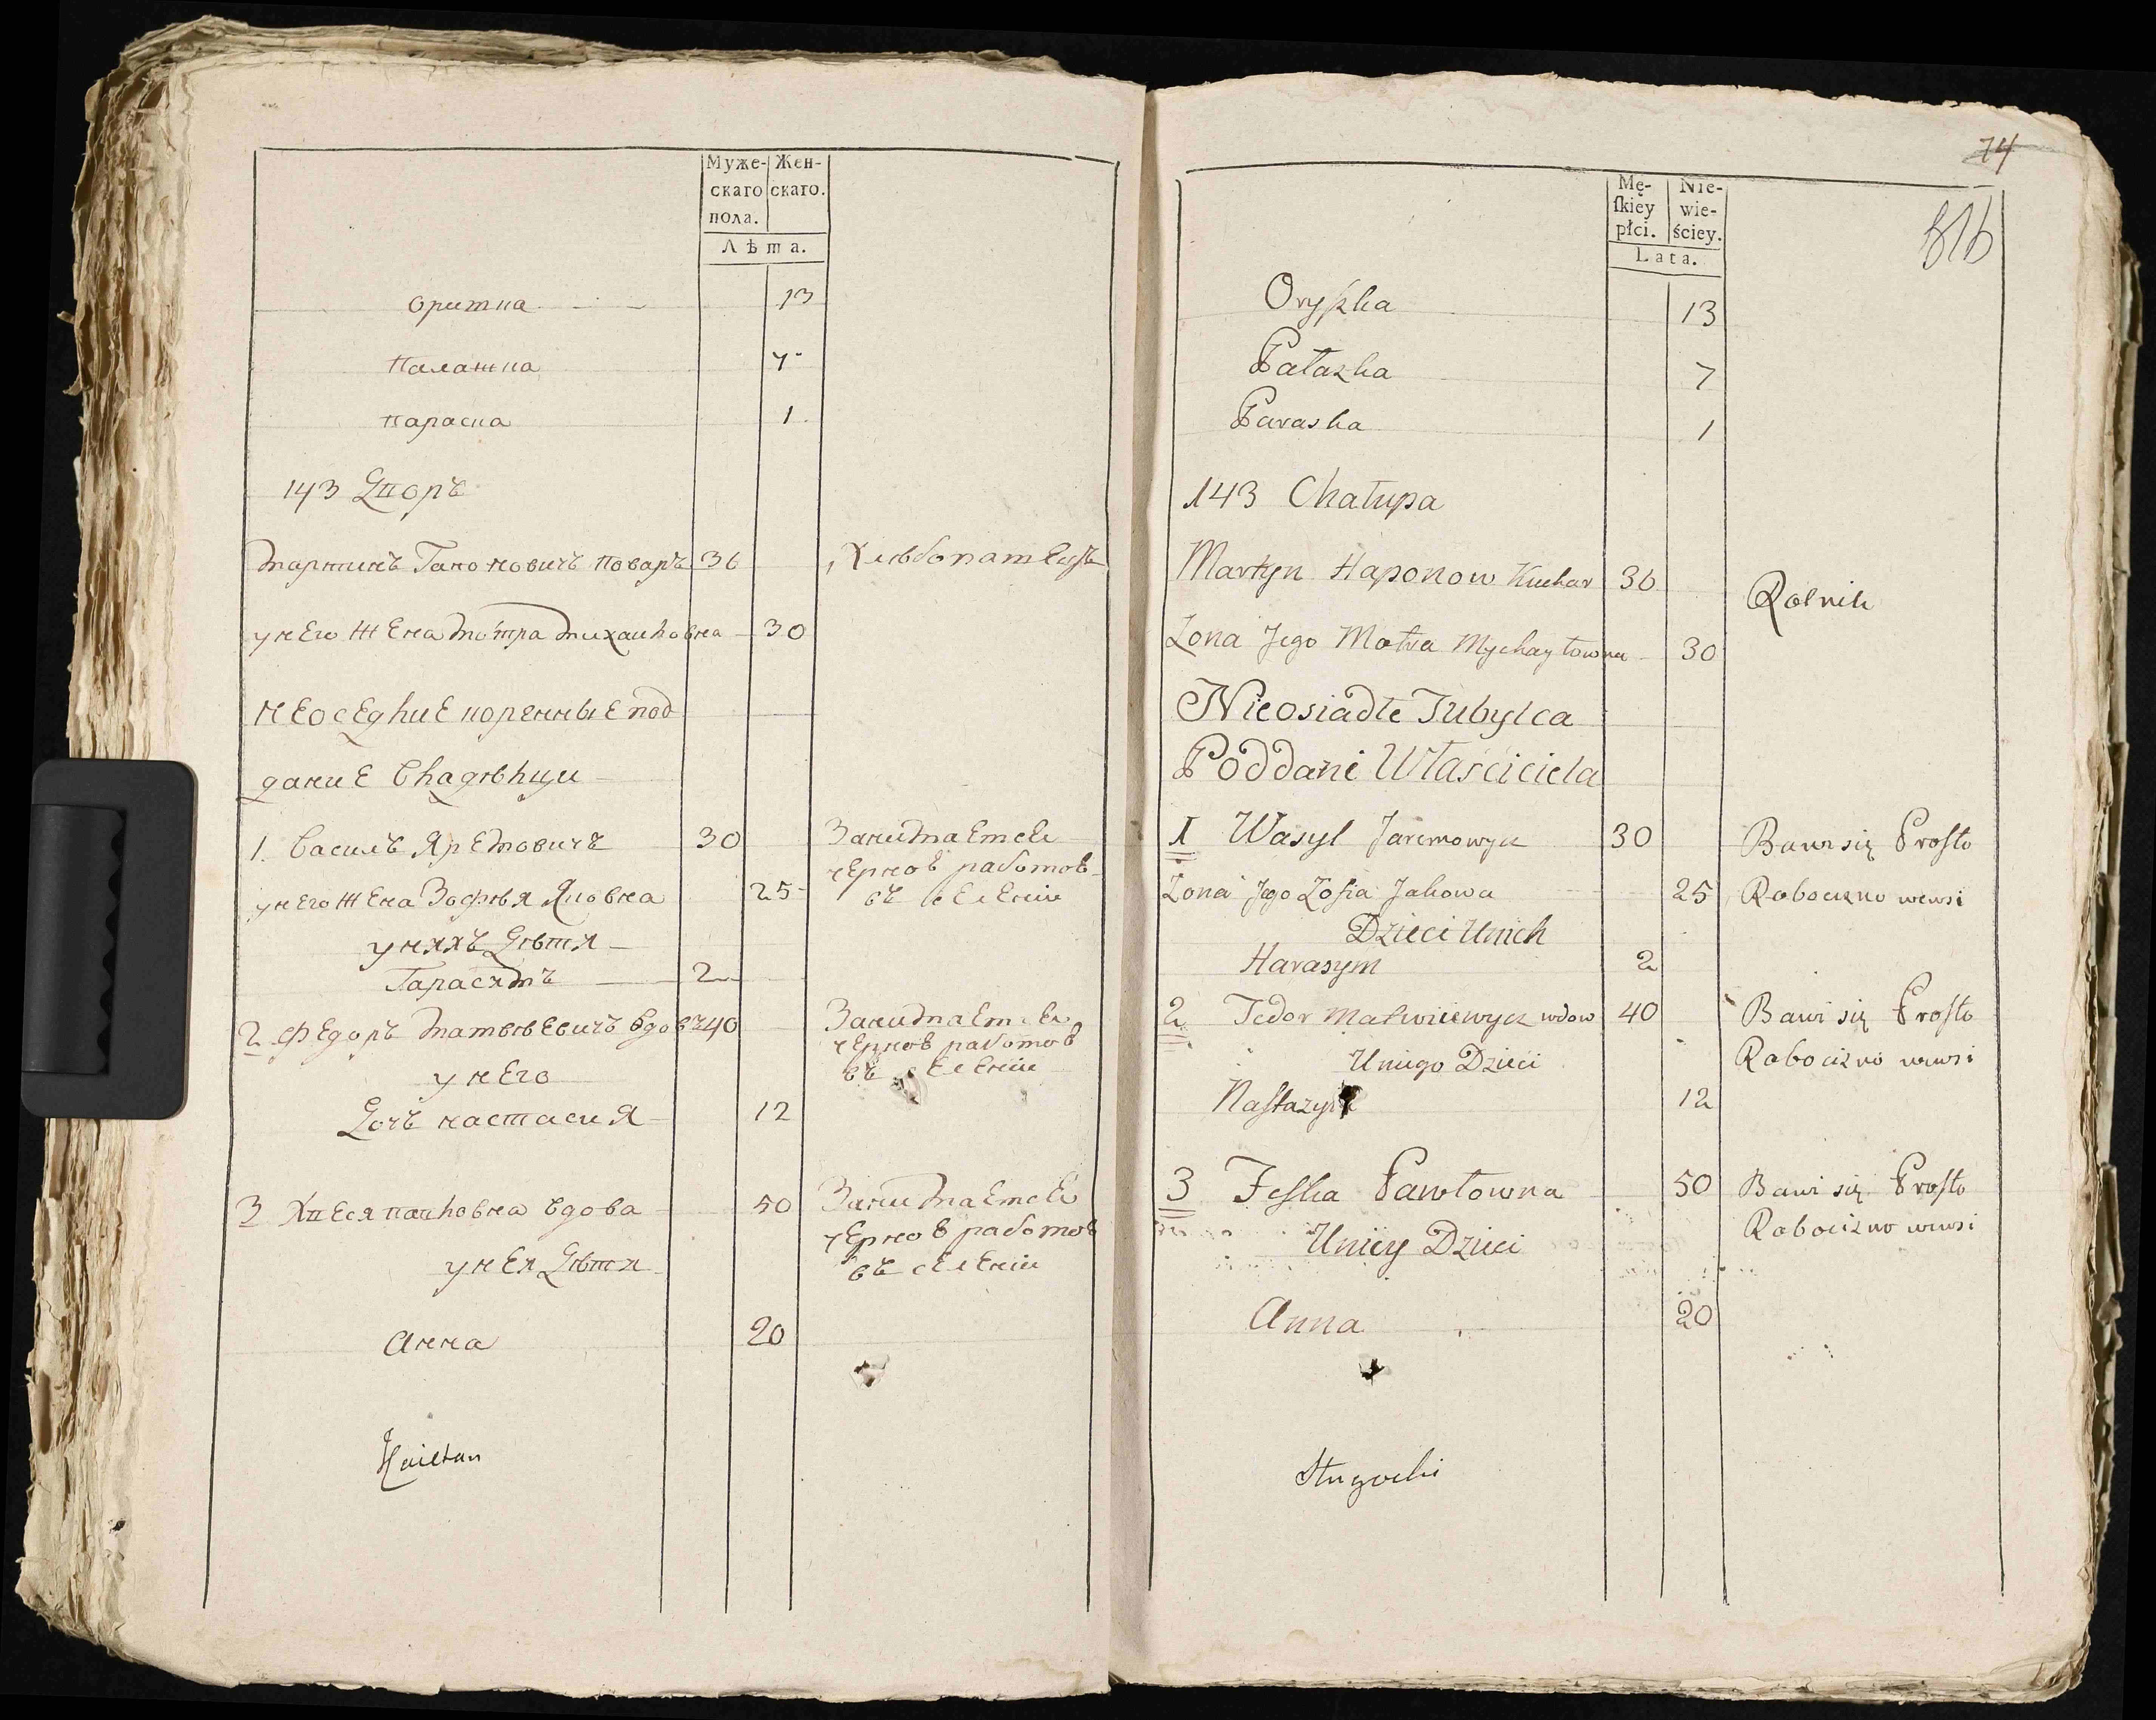 Муже-
скаго
пола.
Жен-
скаго.
Лѣта.
оришка 13
Палажка 7
параска 1
143 Дворъ
Мартинъ Гапоновичъ поваръ 36 Хлѣбопашецъ
у него жена Мотра михайловна 30
неоседлие коренные под
дание владѣлци
1. Василъ Яремовичъ 30 Занимаетсе
черною работою
въ селении
у него жена Зофѣя Яковна 25
у нихъ Дѣтя
Гарасимъ 2
2 Федоръ матвѣевичъ вдовъ 40 Занимаетсе
черною работою
въ селении
у него
Дочъ настасия 12
3 павловна вдова 50 Занимаетсе
черною работою
въ селении
у нея Дѣтя
Анна 20
74
Mę-
ſkiey
płci.
Nie-
wie-
ściey.
Lata.
Oryszka 13
Pałazka 7
Paraska 1
143 Chałupa
Martyn Haponow Kuchar 36 Rolnik
Zona Jego Motra Mychayłowna 30
Nieosiadłe Tubylca
Poddani Właściciela
1 Wasyl Jaremowycz 30 Bawi się Prosto
Zona Jego Zofia Jakowa 25 Robocizno wewsi
Dzieci Unich
Harasym 2
2 Fedor Matwiiewycz wdow 40 Bawi się Prosto
Robocizno wewsi
Uniego Dzieci
Nastazyia 12
3 Jeſka Pawłowna 50 Bawi się Prosto
Robocizno wewsi
Uniey Dzieci
Anna 20